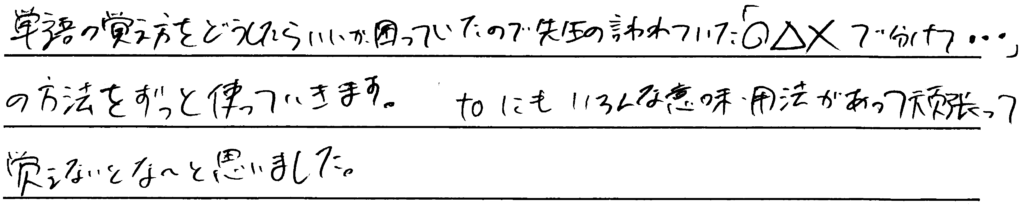 単語の覚え方をどうしたらいいか困っていたので先生の言われていた「○△×で分けて…」
の方法をずっと使っていきます。 toにもいろんな意味・用法があって頑張って
覚えないとな〜と思いました。